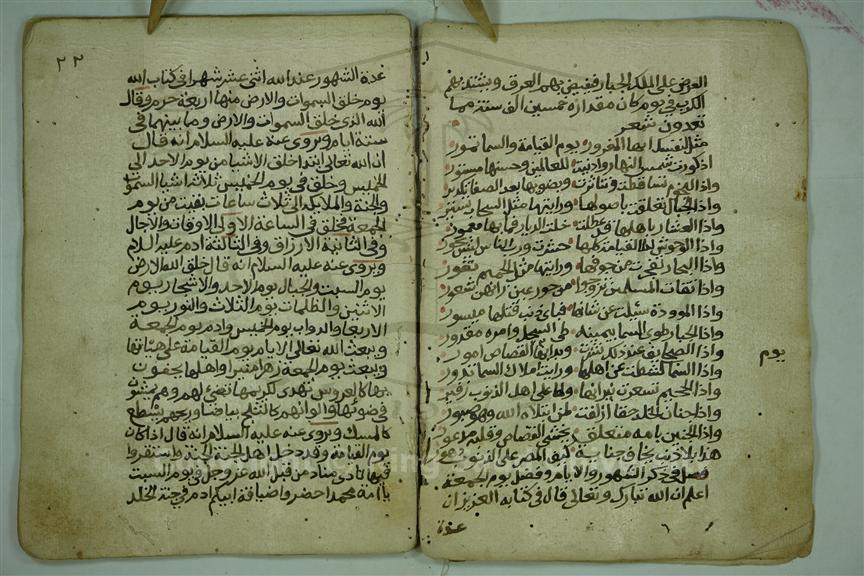 العرض على الملك الجبار فيفيض بهم العرق ويشتد بهم
الكرب في يوم كان مقداره خمسين الف سنة مما
تعدون شعر
مثل لنفسك ايها المغرور يوم القيامة والسما تمور
اذ كورت شمس النهار وادنيت للعالمين
واذا النجوم تساقطت وتناثرت
واذا الجبال تعلقت باصولها ورايتها مثل السحاب تسير
واذا العشار باهلها قد عطلت خلت الديار فما بها معمور
واذا الوحوش لدا القيامة كلها حشرت
واذا البحار من خوفها ورايتها مثل الحميم تفور
واذا تقات المسلمين تزوجوا من حور عين
واذا الموودة سئلت عن شانها فباي ذنب قتلها ميسور
واذا الجبار طوى السما بيمينه طي السجل
واذا الصحايف عند ذلك نشرت
واذا السما تكشطت عن اهلها ورايت املاك السما تدور
واذا الجحيم تسعرت نيرانها ولها على اهل الذنوب زفير
واذا جنان الخلد حقا ازلفت
واذا الجنين بامه متعلق يخشى القصاص وقلبه مذعور
هذا بلا ذنب يخاف جناية كيف المصر على الذنوب
فصل في ذكر الشهور والايام وفضل يوم الجمعة
اعلم ان الله تبارك وتعالى قال في كتابه العزيز ان
عدة
يوم
٢٢
عدة الشهور عند الله اثنى عشر شهرا في كتاب الله
يوم خلق السموات والارض منها اربعة حرم وقال
الله الذي خلق السموات والارض وما بينهما في
ستة ايام وروى عنه عليه السلام انه قال
ان الله تعالى ابتدا خلق الاشيا من يوم الاحد الى
الخميس وخلق في يوم الخميس ثلاثة اشيا السموات
والجنة والملايكة الى ثلاث ساعات بقيت من يوم
الجمعة فخلق في الساعة الاولى الاوقات والاجال
وفي الثانية الارزاق وفي الثالثة ادم عليه السلام
ويروى عنه عليه السلام انه قال خلق الله الارض
يوم السبت والجبال يوم الاحد والاشجار يوم
الاثنين والظلمات يوم الثلاث والنور يوم
الاربعا والدواب يوم الخميس وادم يوم الجمعة
ويبعث الله تعالى الايام يوم القيامة على هيئاتها
ويبعث يوم الجمعة زهرا منيرا واهلها يحفون
بها كالعروس تهدى لكريمها تضي لهم وهم يمشون
في ضوئها والوانهم كالثلج بياضا وريحهم يسطع
كالمسك وروى عنه عليه السلام انه قال اذا كان
يوم القيامة وقد دخل اهل الجنة الجنة واستقروا
فيها نادى مناد من قبل الله عز وجل في يوم السبت
يا امة محمد احضروا ضيافة ابيكم ادم في جنة الخلد